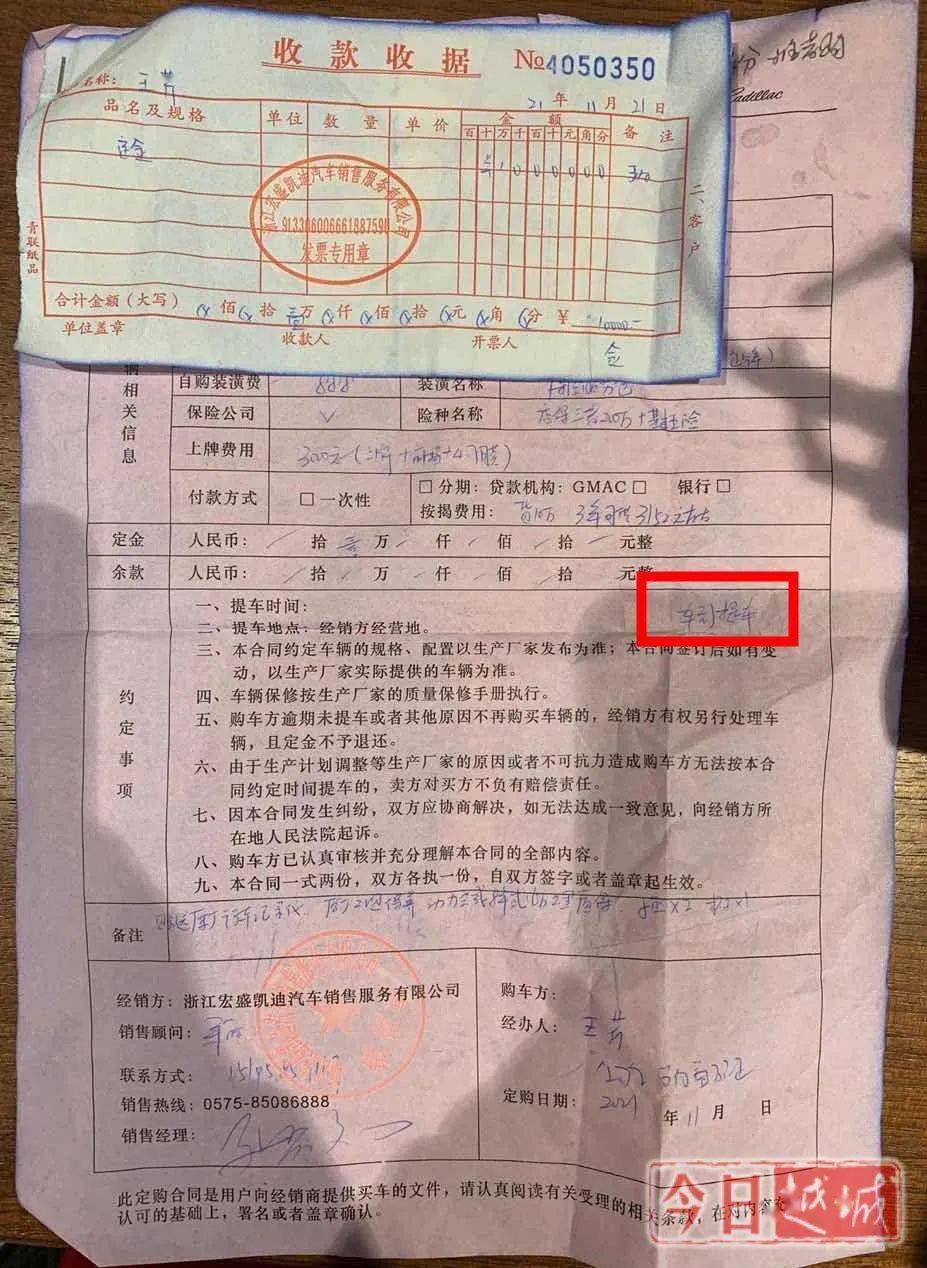 收款收据 №4050350
Cadillac
名称：王芳
21年11月21日
品名及规格 单位 数量 单价 金额 备注
百十万千百十元角分
定金
二、客户
青联纸品
浙江宏盛凯迪汽车销售服务有限公司
发票专用章
合计金额（大写） 佰 拾 壹万 仟 佰 拾 元 角 分 ¥ 10000-
单位盖章 收款人 开票人
辆相关信息
自购装潢费 装潢名称
保险公司 险种名称
上牌费用
付款方式 □一次性 □分期：贷款机构：GMAC□ 银行□
按揭费用：
定金 人民币： 拾 壹 万 仟 佰 拾 元整
余款 人民币： 拾 万 仟 佰 拾 元整
约定事项
一、提车时间： 车到提车
二、提车地点：经销方经营地。
三、本合同约定车辆的规格、配置以生产厂家发布为准；本合同签订后如有变
动，以生产厂家实际提供的车辆为准。
四、车辆保修按生产厂家的质量保修手册执行。
五、购车方逾期未提车或者其他原因不再购买车辆的，经销方有权另行处理车
辆，且定金不予退还。
六、由于生产计划调整等生产厂家的原因或者不可抗力造成购车方无法按本合
同约定时间提车的，卖方对买方不负有赔偿责任。
七、因本合同发生纠纷，双方应协商解决，如无法达成一致意见，向经销方所
在地人民法院起诉。
八、购车方已认真审核并充分理解本合同的全部内容。
九、本合同一式两份，双方各执一份，自双方签字或者盖章起生效。
备注
经销方：浙江宏盛凯迪汽车销售服务有限公司
购车方：
销售顾问：
经办人：王芳
联系方式：
销售热线：0575-85086888
定购日期：2021年11月 日
销售经理：
此定购合同是用户向经销商提供买车的文件，请认真阅读有关受理的相关条款，在对内容充
认可的基础上，署名或者盖章确认。
今日越城